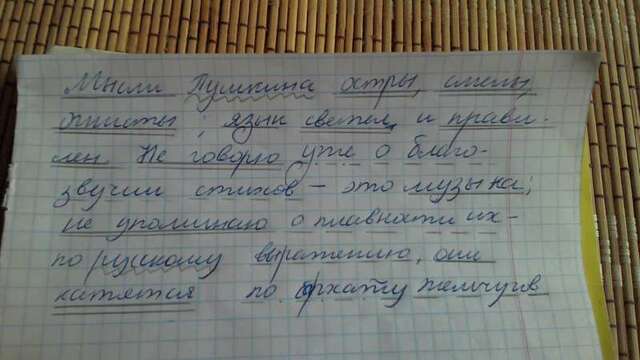 Мысли Пушкина остры, смелы
огнисты; язык светел и прави-
лен. Не говорю уже о благо-
звучии стихов – это музыка;
не упоминаю о плавности их -
по русскому выражению, они
катятся по бархату жемчугов